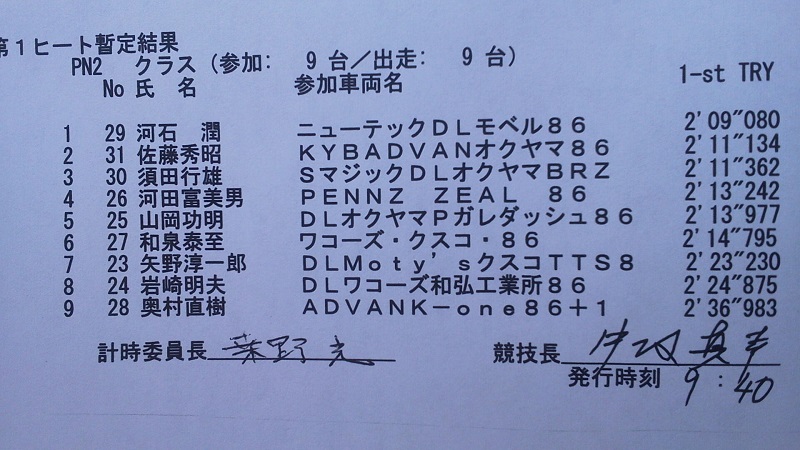 第1ヒート暫定結果
PN2 クラス (参加: 9 台/出走: 9 台)
No 氏 名 参加車両名 1-st TRY
1 29 河石 潤 ニューテックDLモベル86 2'09"080
2 31 佐藤秀昭 KYBADVANオクヤマ86 2'11"134
3 30 須田行雄 SマジックDLオクヤマBRZ 2'11"362
4 26 河田富美男 PENNZ ZEAL 86 2'13"242
5 25 山岡功明 DLオクヤマPガレダッシュ86 2'13"977
6 27 和泉泰至 ワコーズ・クスコ・86 2'14"795
7 23 矢野淳一郎 DLMoty'sクスコTTS8 2'23"230
8 24 岩崎明夫 DLワコーズ和弘工業所86 2'24"875
9 28 奥村直樹 ADVANK-one86+1 2'36"983
計時委員長 競技長
発行時刻 9:40